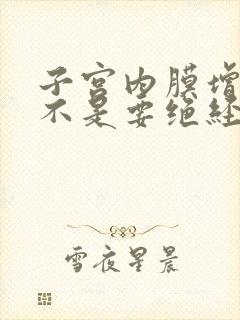 子宫内膜增
不是要绝经
雪夜星晨